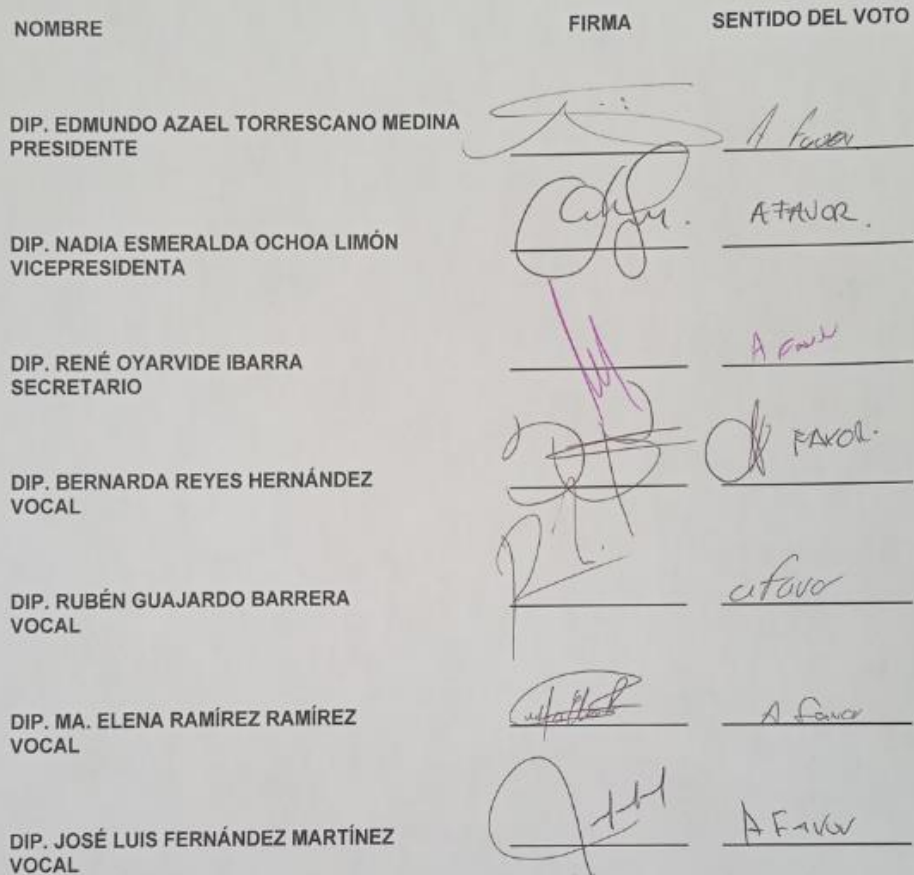 NOMBRE FIRMA SENTIDO DEL VOTO
DIP. EDMUNDO AZAEL TORRESCANO MEDINA
PRESIDENTE
A favor
DIP. NADIA ESMERALDA OCHOA LIMÓN
VICEPRESIDENTA
A FAVOR.
DIP. RENÉ OYARVIDE IBARRA
SECRETARIO
A favor
DIP. BERNARDA REYES HERNÁNDEZ
VOCAL
A FAVOR.
DIP. RUBÉN GUAJARDO BARRERA
VOCAL
a favor
DIP. MA. ELENA RAMÍREZ RAMÍREZ
VOCAL
A favor
DIP. JOSÉ LUIS FERNÁNDEZ MARTÍNEZ
VOCAL
A Favor